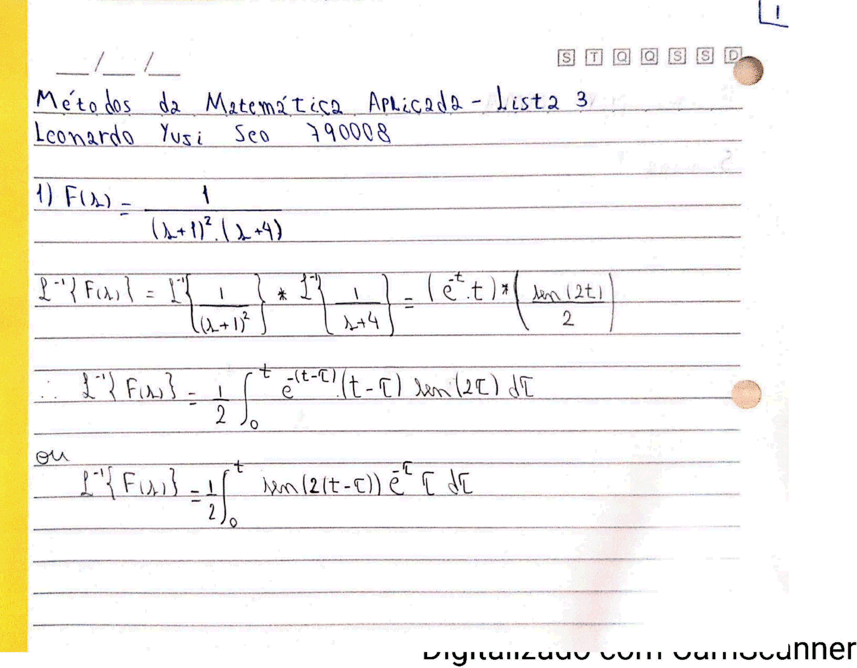 1
__/__/__
S T Q Q S S D
Métodos da Matemática Aplicada - Lista 3
Leonardo Yusi Seo 790008
1) F(s) = 1 / ((s+1)².(s+4))
L⁻¹{F(s)} = L⁻¹{1/(s+1)²} * L⁻¹{1/(s+4)} = (e⁻ᵗ.t) * (sen(2t)/2)
∴ L⁻¹{F(s)} = 1/2 ∫₀ᵗ e^-(t-τ).(t-τ) sen(2τ) dτ
ou
L⁻¹{F(s)} = 1/2 ∫₀ᵗ sen(2(t-τ)) e^-τ τ dτ
Digitalizado com CamScanner